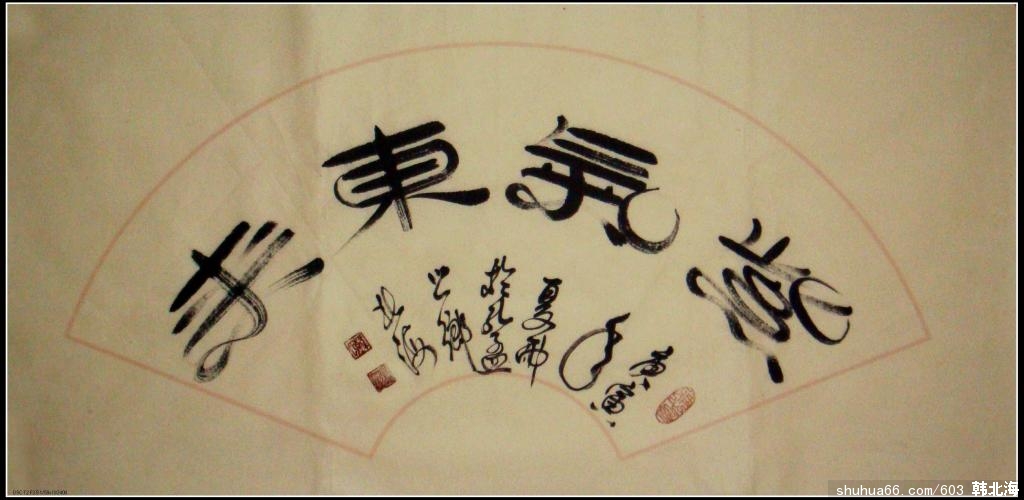 紫氣東来
庚寅
年
夏雨
於孔孟
之鄉
北海
shuhua66.com/603 韩北海